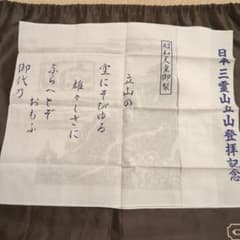 日本三霊山立山登拝記念
昭和天皇御製
立山の
空にそびゆる
雄々しさに
ならへとぞ
おもふ
御代乃